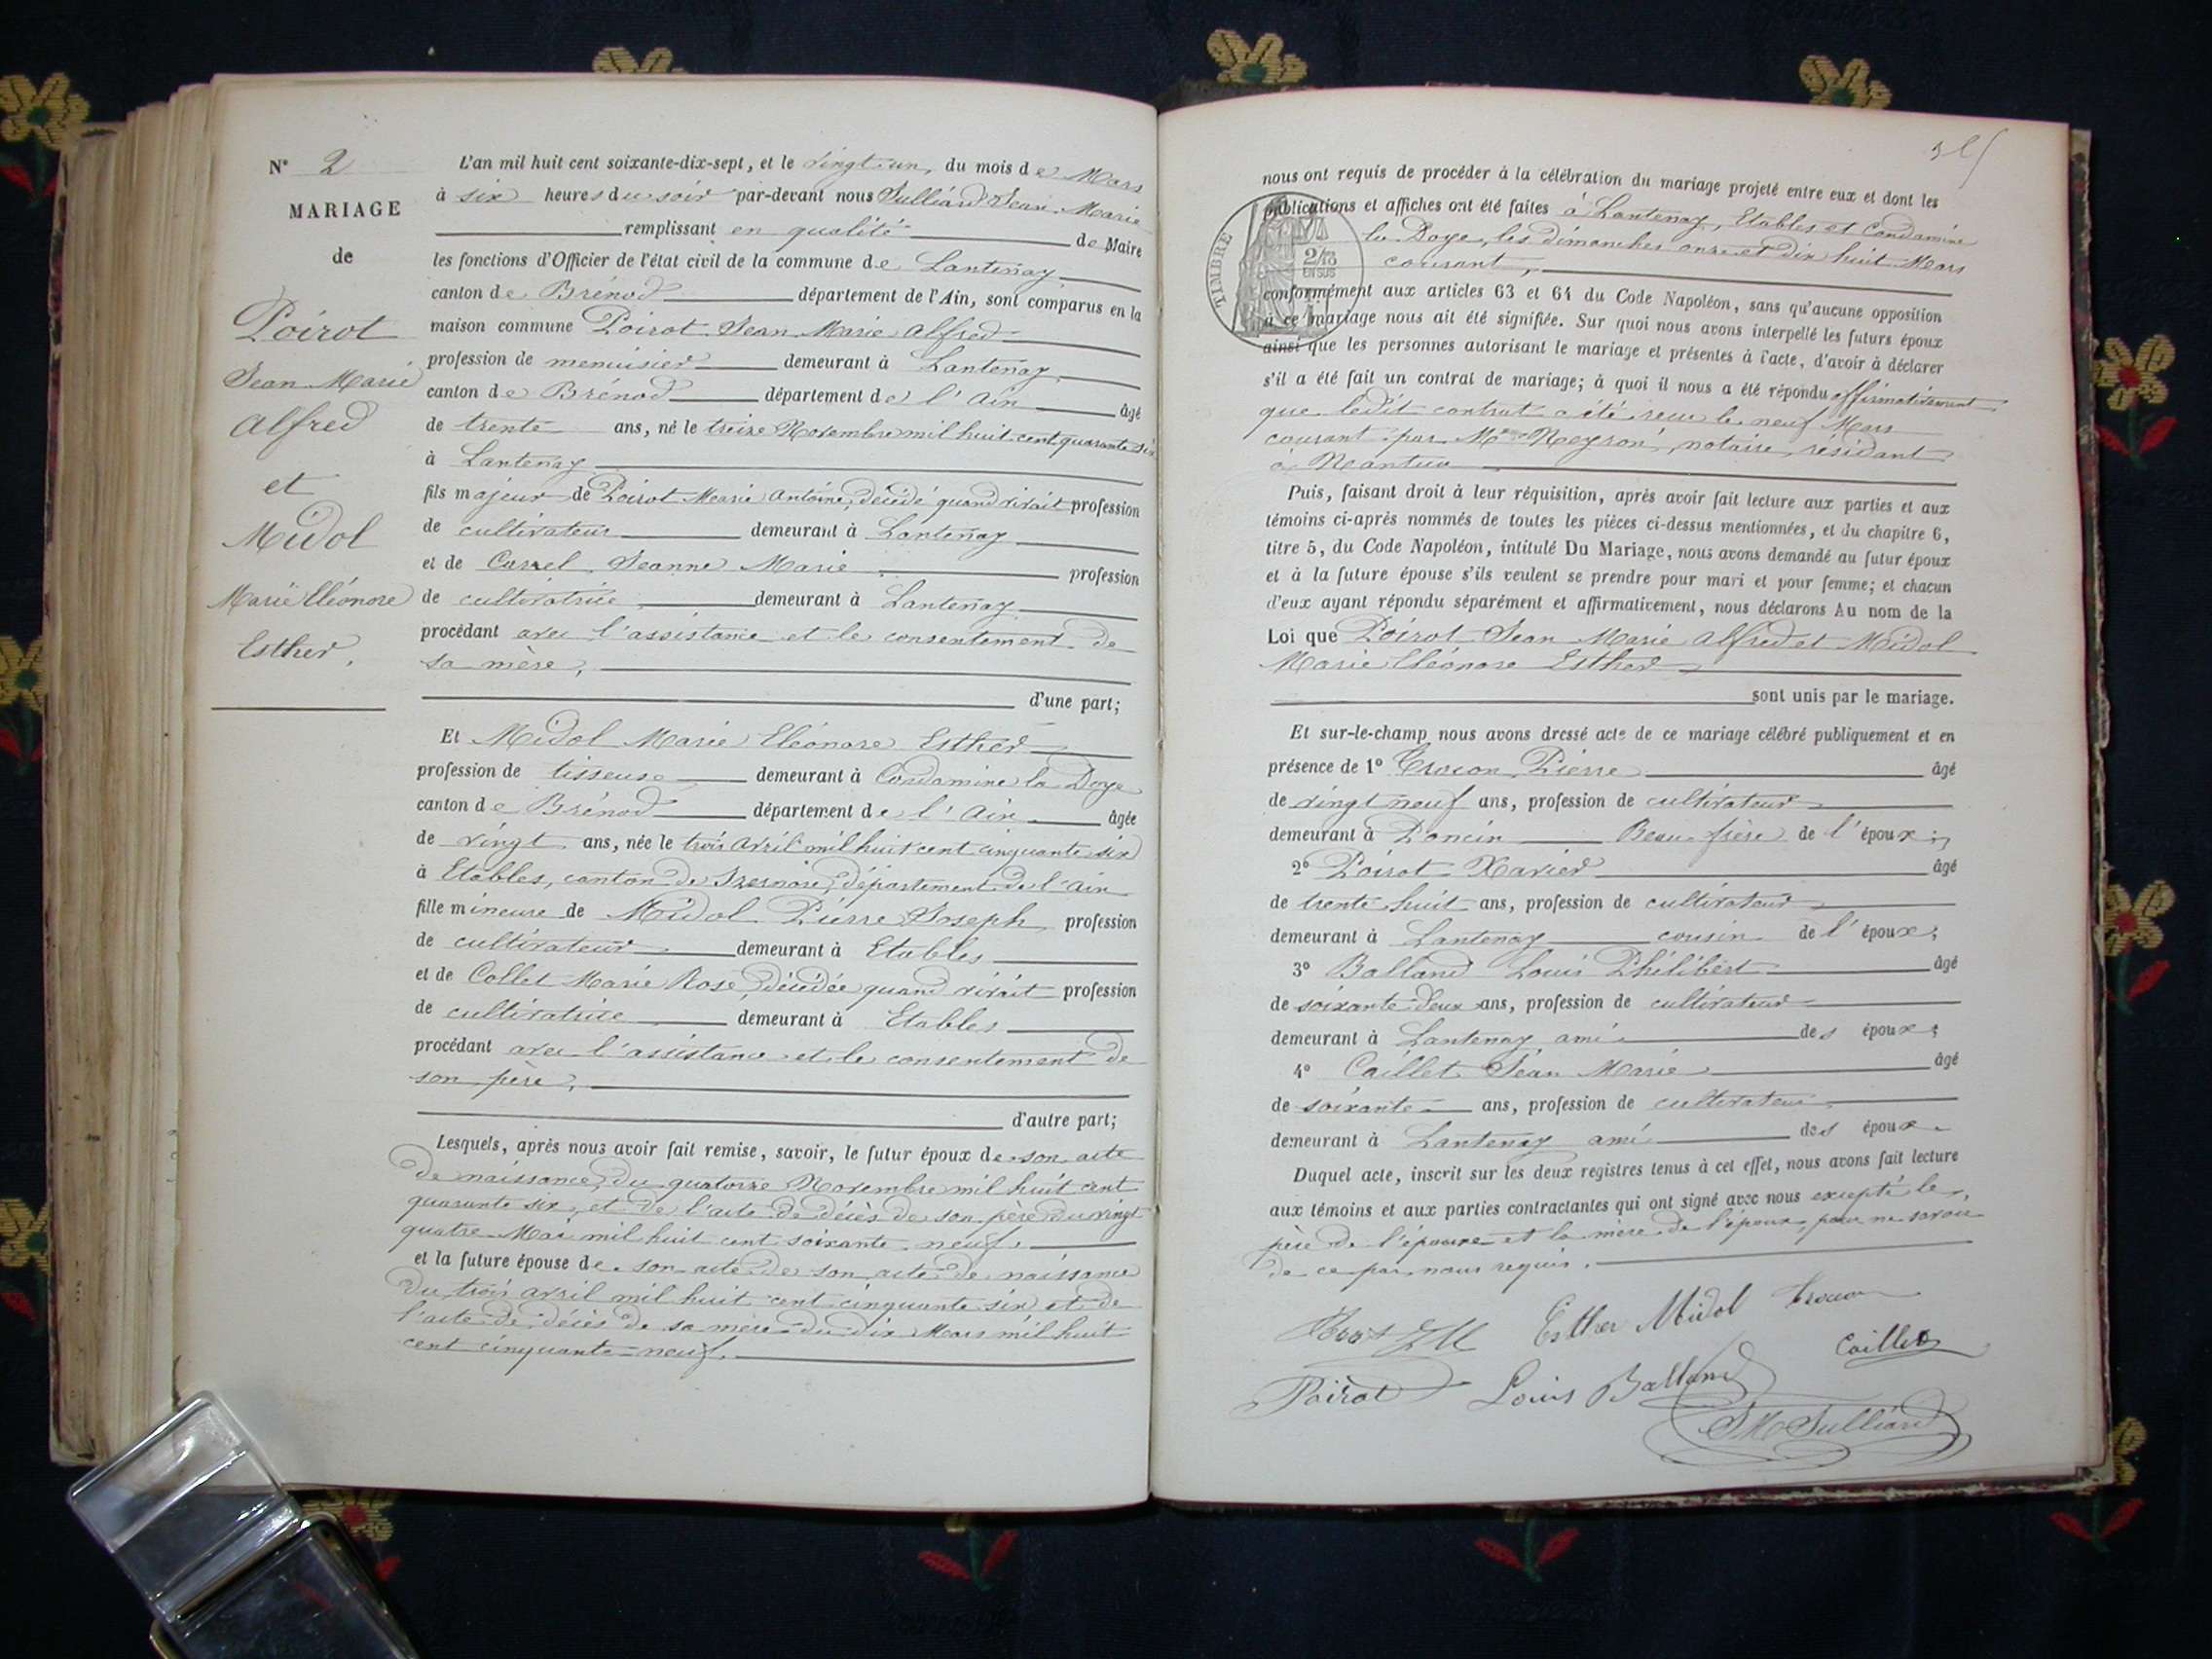 N° 2
MARIAGE
de
Poirot
Jean Marie
Alfred
et
Midol
Marie Eléonore
Esther.
L'an mil huit cent soixante-dix-sept, et le vingt un, du mois de Mars
à six heures du soir par-devant nous Julliard Jean Marie
remplissant en qualité de Maire
les fonctions d'Officier de l'état civil de la commune de Lantenay
canton de Brénod département de l'Ain, sont comparus en la
maison commune Poirot Jean Marie Alfred
profession de menuisier demeurant à Lantenay
canton de Brénod département de l'Ain âgé
de trente ans, né le treize Novembre mil huit cent quarante six
à Lantenay
fils majeur de Poirot Marie Antoine, décédé quand vivait profession
de cultivateur demeurant à Lantenay
et de Carrel Jeanne Marie profession
de cultivatrice demeurant à Lantenay
procédant avec l'assistance et le consentement de
sa mère,
d'une part;
Et Midol Marie Eléonore Esther
profession de tisseuse demeurant à Condamine la Doye
canton de Brénod département de l'Ain âgée
de vingt ans, née le trois Avril mil huit cent cinquante six
à Etables, canton de Izernore, département de l'Ain
fille mineure de Midol Pierre Joseph profession
de cultivateur demeurant à Etables
et de Collet Marie Rose, décédée quand vivait profession
de cultivatrice demeurant à Etables
procédant avec l'assistance et le consentement de
son père,
d'autre part;
Lesquels, après nous avoir fait remise, savoir, le futur époux de son acte
de naissance, du quatorze Novembre mil huit cent
quarante six, et de l'acte de décès de son père du vingt
quatre Mai mil huit cent soixante neuf.
et la future épouse de son acte de son acte de naissance
du trois avril mil huit cent cinquante six et de
l'acte de décès de sa mère du dix Mars mil huit
cent cinquante-neuf.
nous ont requis de procéder à la célébration du mariage projeté entre eux et dont les
publications et affiches ont été faites à Lantenay, Etables et Condamine
la Doye, les dimanches onze et dix huit Mars
courant,
TIMBRE
2/10
EN SUS
conformément aux articles 63 et 64 du Code Napoléon, sans qu'aucune opposition
à ce mariage nous ait été signifiée. Sur quoi nous avons interpellé les futurs époux
ainsi que les personnes autorisant le mariage et présentes à l'acte, d'avoir à déclarer
s'il a été fait un contrat de mariage; à quoi il nous a été répondu affirmativement
que ledit contrat a été reçu le neuf Mars
courant par Me Neyron, notaire, résidant
à Nantua
Puis, faisant droit à leur réquisition, après avoir fait lecture aux parties et aux
témoins ci-après nommés de toutes les pièces ci-dessus mentionnées, et du chapitre 6,
titre 5, du Code Napoléon, intitulé Du Mariage, nous avons demandé au futur époux
et à la future épouse s'ils veulent se prendre pour mari et pour femme; et chacun
d'eux ayant répondu séparément et affirmativement, nous déclarons Au nom de la
Loi que Poirot Jean Marie Alfred et Midol
Marie Eléonore Esther
sont unis par le mariage.
Et sur-le-champ nous avons dressé acte de ce mariage célébré publiquement et en
présence de 1° Crocon Pierre âgé
de vingt neuf ans, profession de cultivateur
demeurant à Poncin Beau-frère de l'époux;
2° Poirot Xavier âgé
de trente huit ans, profession de cultivateur
demeurant à Lantenay cousin de l'époux;
3° Balland Louis Philibert âgé
de soixante deux ans, profession de cultivateur
demeurant à Lantenay ami des époux;
4° Caillet Jean Marie âgé
de soixante ans, profession de cultivateur
demeurant à Lantenay ami des époux.
Duquel acte, inscrit sur les deux registres tenus à cet effet, nous avons fait lecture
aux témoins et aux parties contractantes qui ont signé avec nous excepté le
père de l'épouse et la mère de l'époux, pour ne savoir
de ce par nous requis.
Esther Midol
Caillet
Poirot Louis Balland
JM Julliard